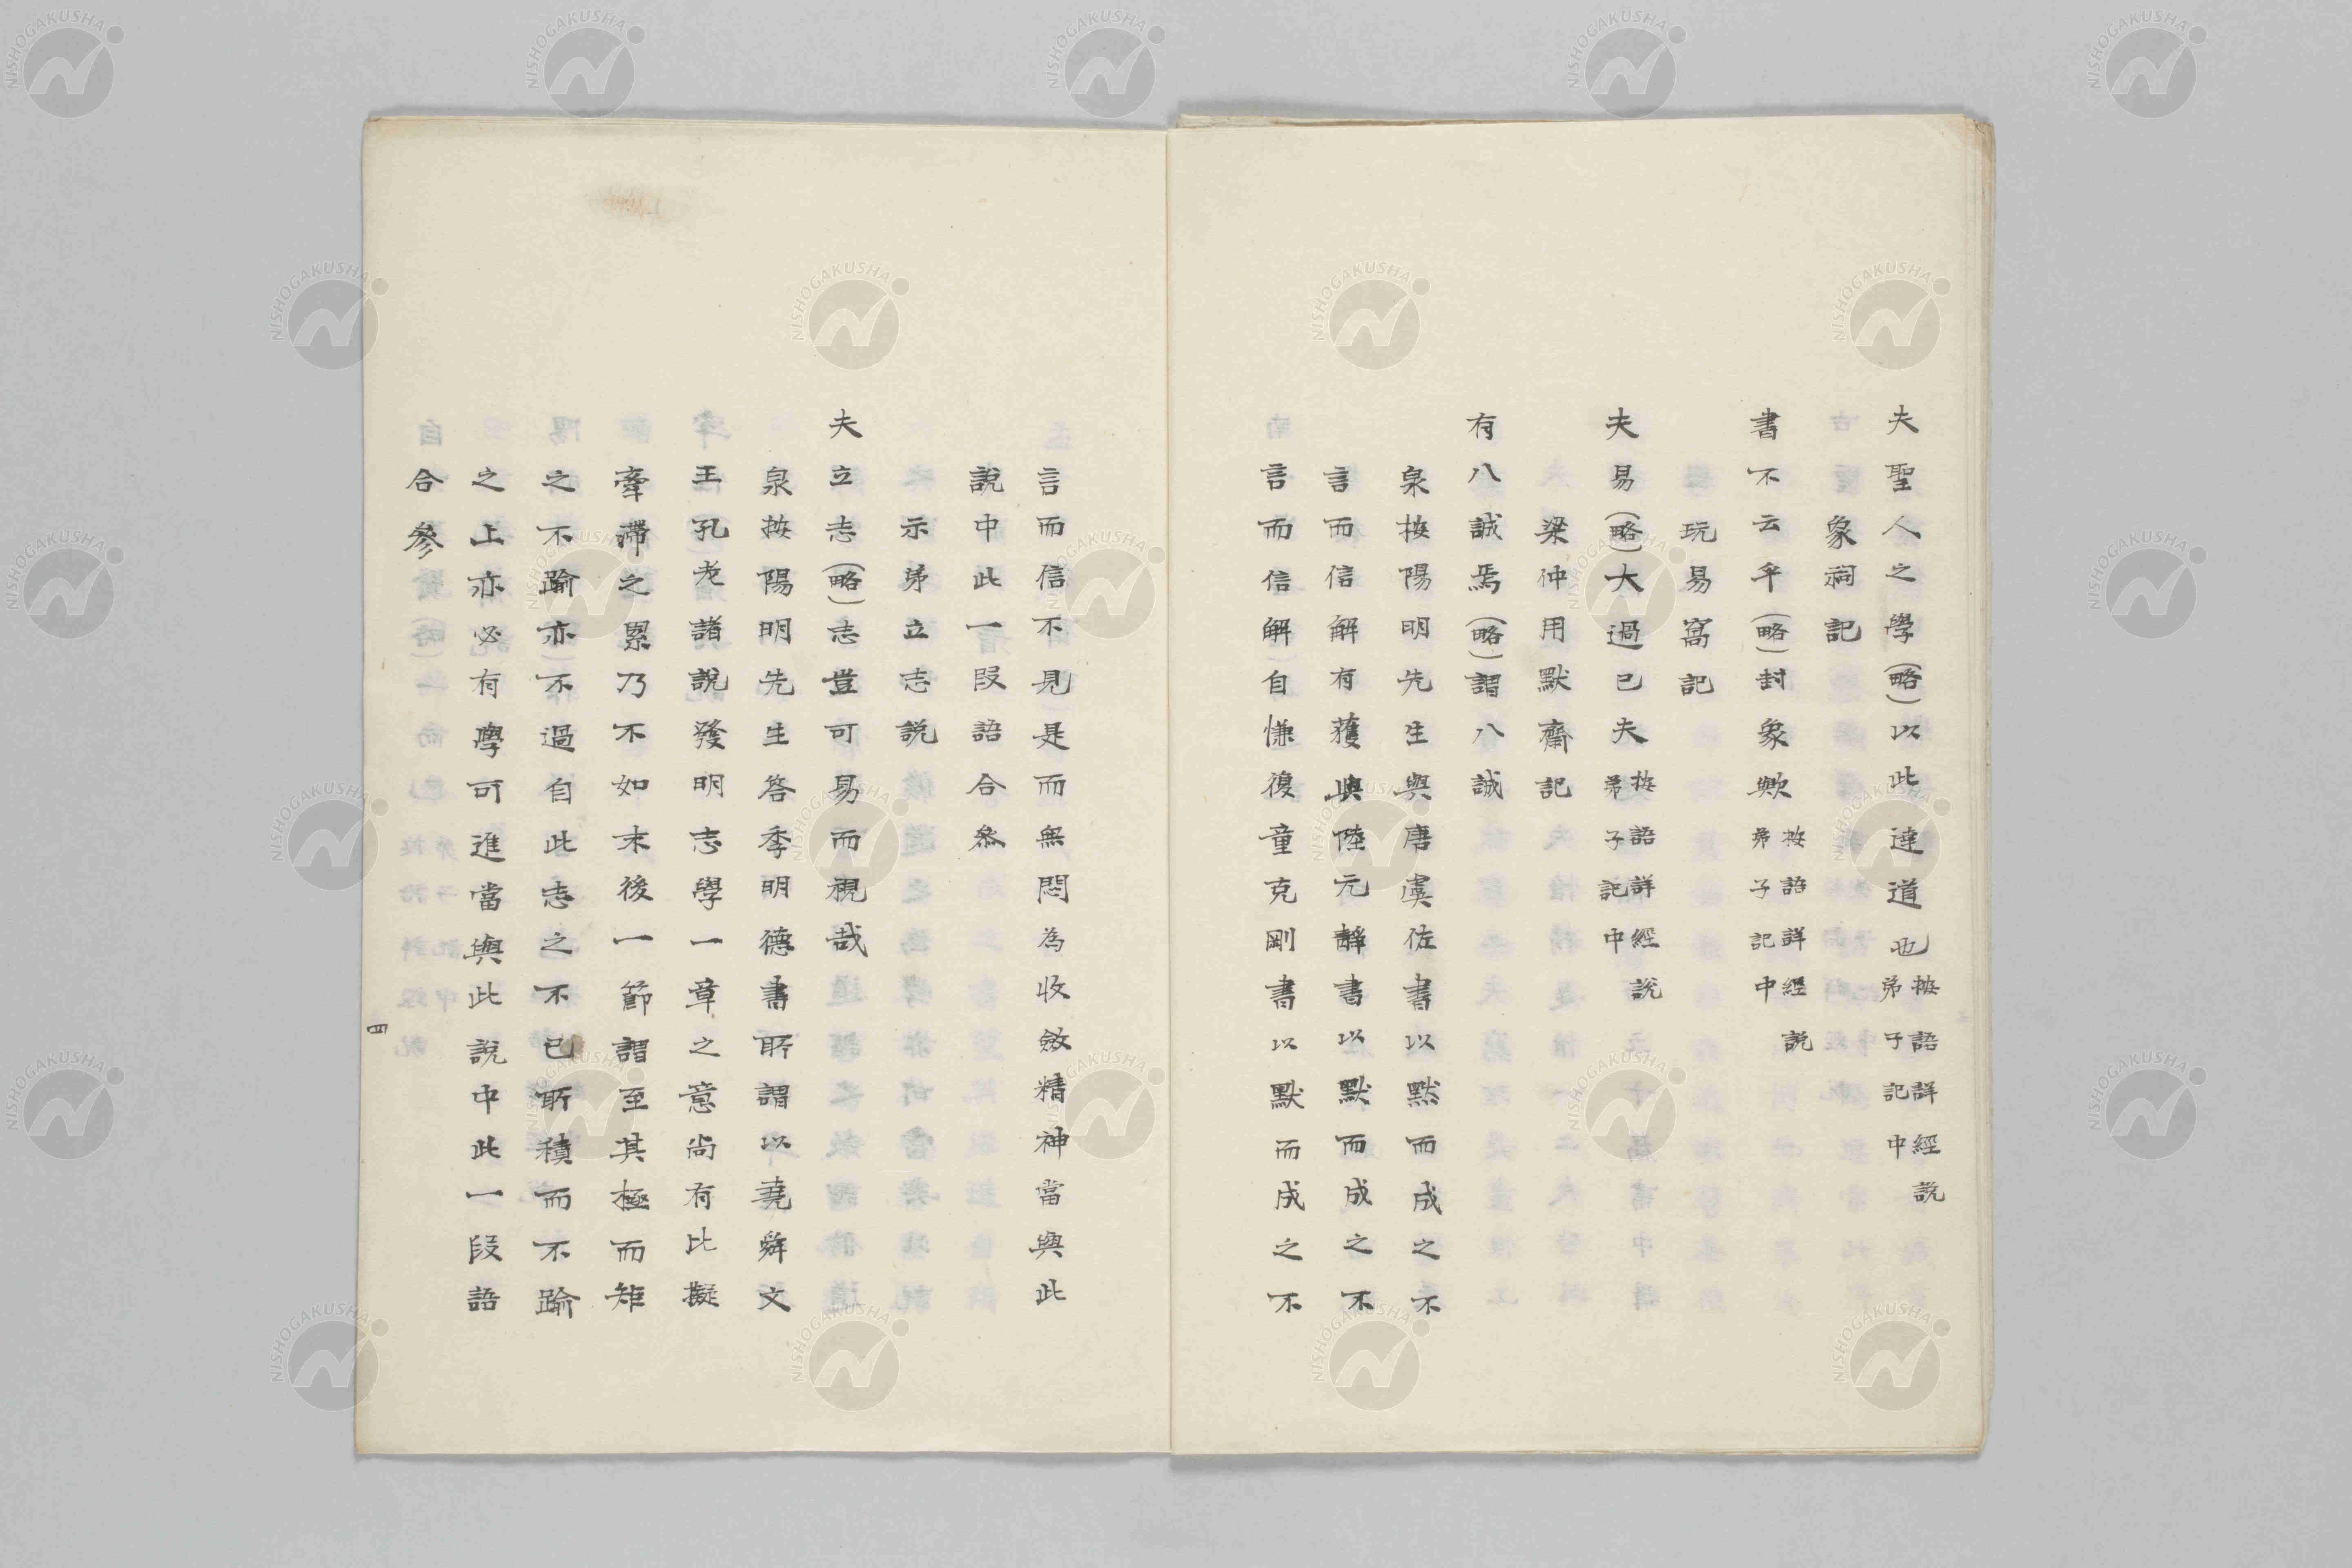 夫聖人之學(略)以此達道也按語詳經說
弟子記中
象祠記
書不云乎(略)封象歟按語詳經說
弟子記中
玩易窩記
夫易(略)大過已夫按語詳經說
弟子記中
梁仲用默齋記
有八誠焉(略)謂八誠
泉按陽明先生與唐虞佐書以默而成之不
言而信解有獲與陸元靜書以默而成之不
言而信解自慊復童克剛書以默而成之不
言而信不見是而無悶為收斂精神當與此
說中此一段語合參
示弟立志說
夫立志(略)志豈可易而視哉
泉按陽明先生答季明德書所謂以堯舜文
王孔老諸說發明志學一章之意尚有比擬
牽滯之累乃不如末後一節謂至其極而矩
之不踰亦不過自此志之不已所積而不踰
之上亦必有學可進當與此說中此一段語
合參
四
NISHOGAKUSHA